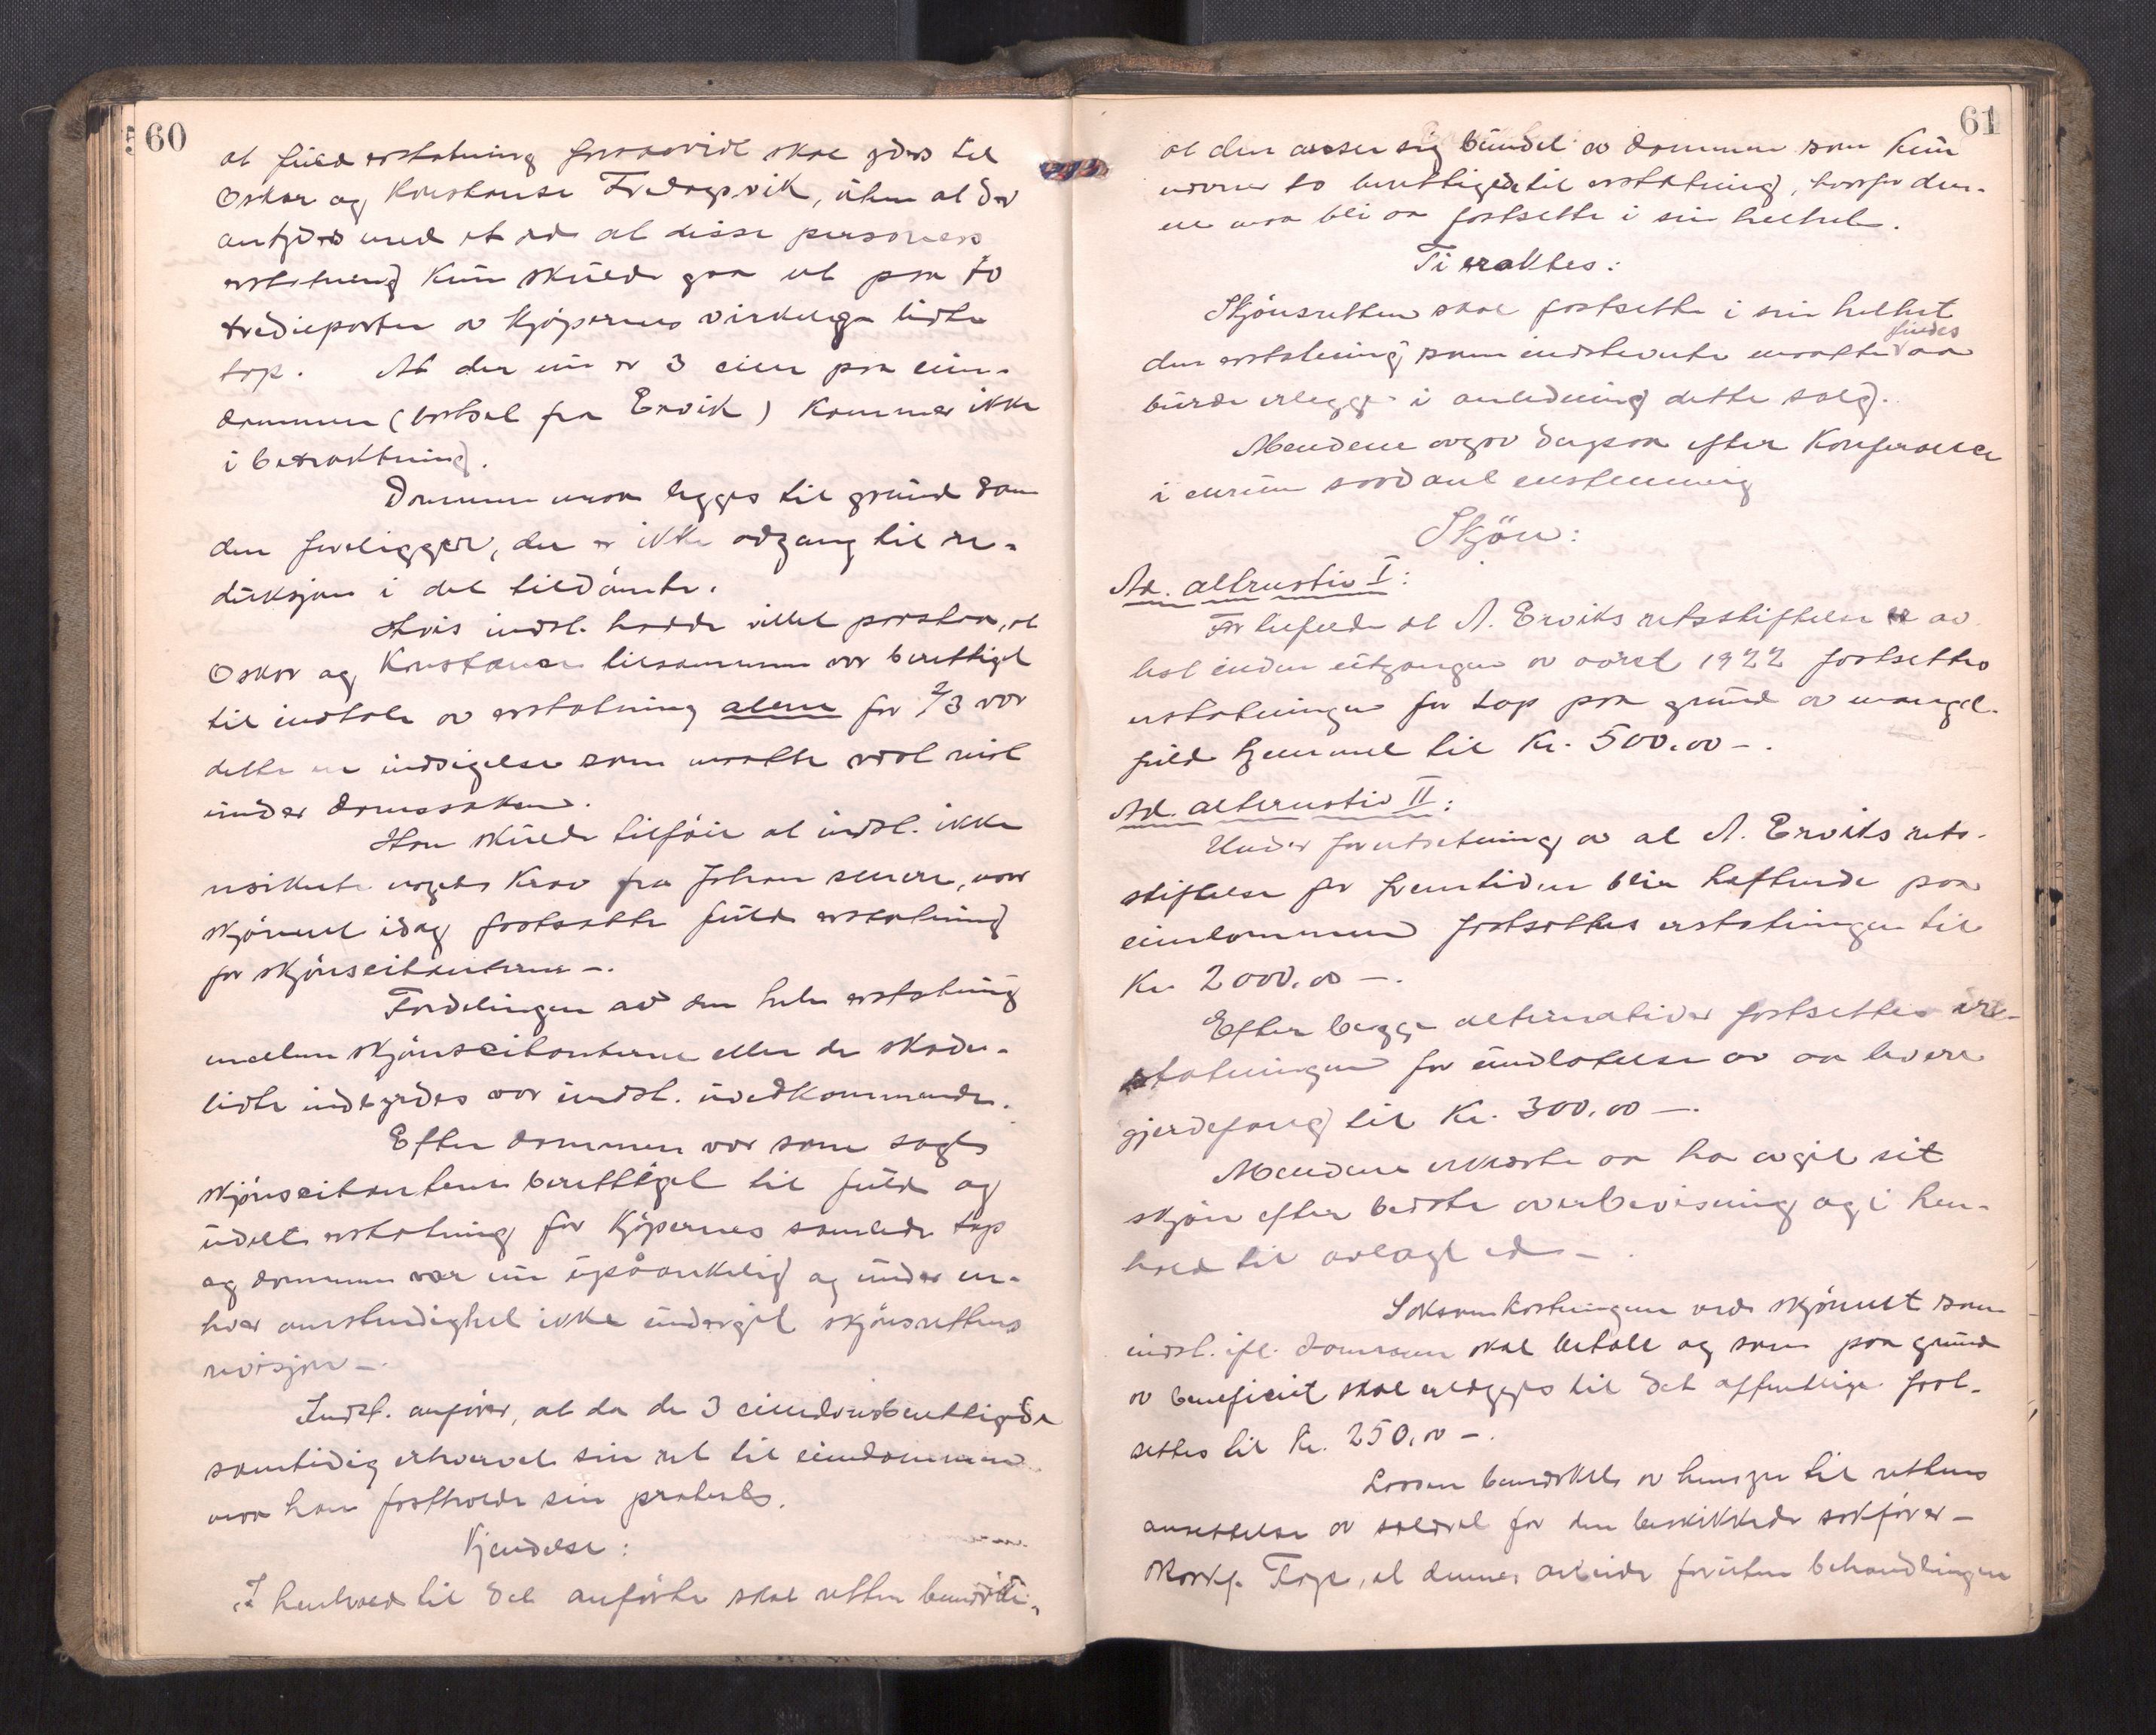 60
at fuld erstatning forsaavidt skal ydes til
Oskar og Konstanse Fredagsvik, uten at der
antydes med et ord at disse personers
erstatning kun skulde gaa ut paa to
tredieparter av kjøpernes virkelige lidte
tap. At der nu er 3 eier paa eien-
dommen (bortset fra Ervik) kommer ikke
i betraktning.
Dommen maa legges til grund som
den foreligger, der er ikke adgang til re-
duksjon i det tildømte.
Hvis indst. hadde villet paastaa, at
Oskar og Konstanse tilsammen var berettiget
til indtale av erstatning alene for 2/3 var
dette en indsigelse som maatte vært reist
under domssaken.
Han skulde tilføie at indst. ikke
risikerte noget krav fra Johan senere, naar
skjønnet idag fastsatte fuld erstatning
for skjønscitanterne -.
Fordelingen av den hele erstatning
mellem skjønscitanterne eller de skade-
lidte indbyrdes var indst. uvedkommende.
Efter dommen var som sagt
skjønscitanterne berettiget til fuld og
udelt erstatning for kjøpernes samlede tap
og dommen var nu upåankelig og under en-
hver omstendighet ikke undergit skjønsrettens
revisjon -.
Indst. anfører, at da de 3 eiendomsberettigede
samtidig erhvervet sin ret til eiendommen
maa han fastholde sin protest.
Kjendelse:
I henhold til det anførte skal retten bemerke,
61
at den anser sig bundet av dommen som kun
nevner to berettigede til erstatning, hvorfor den-
ne maa bli aa fastsette i sin helhet.
Ti eraktes:
Skjønsretten skal fastsette i sin helhet
den erstatning som indstevnte maatte findes aa
burde erlegge i anledning dette salg.
Mendene avgav derpaa efter konferanse
i enrum saadant enstemmig
Skjøn:
Ad. altrnativ I:
For tilfelde at A. Erviks retsstiftelse er av
lest inden utgangen av aaret 1922 fastsettes
erstatningen for tap paa grund av mangel-
fuld hjemmel til Kr. 500.00 -.
Ad. alternativ II:
Under forutsetning av at A. Erviks rets-
stiftelse for fremtiden blir heftende paa
eiendommen fastsettes erstatningen til
Kr. 2000.00 -.
Efter begge alternativer fastsettes er-
statningen for undlatelse av aa levere
gjerdefang til Kr. 300.00 -.
Mendene erklærte aa ha avgit sit
skjøn efter bedste overbevisning og i hen-
hold til avlagt ed -.
Saksomkostningene ved skjønnet som
indst. ifl. dommen skal betale og som paa grund
av beneficiet skal erlægges til det offentlige fast-
settes til Kr. 250.00 -.
Lovson bemerket av hensyn til rettens
ansettelse av salær for den beskikkede sakfører -
Overf. Fasp, at dennes arbeide foruten behandlingen